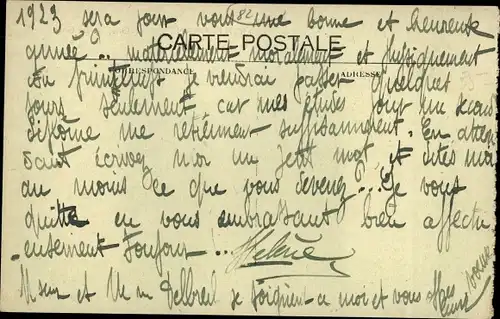 1923 sera pour vous une bonne et heureuse
année .. matériellement moralement et physiquement
CARTE POSTALE
CORRESPONDANCE
ADRESSE
Au printemps je viendrai passer quelques
jours seulement car mes études pour un
diplôme me retiennent suffisamment. En atten
dant écrivez moi un petit mot et dites moi
au moins ce que vous devenez ... Je vous
quitte en vous embrassant bien affectu
eusement toujours ..
Hélène
Mr et Mme Delbreil se joignent à moi et vous